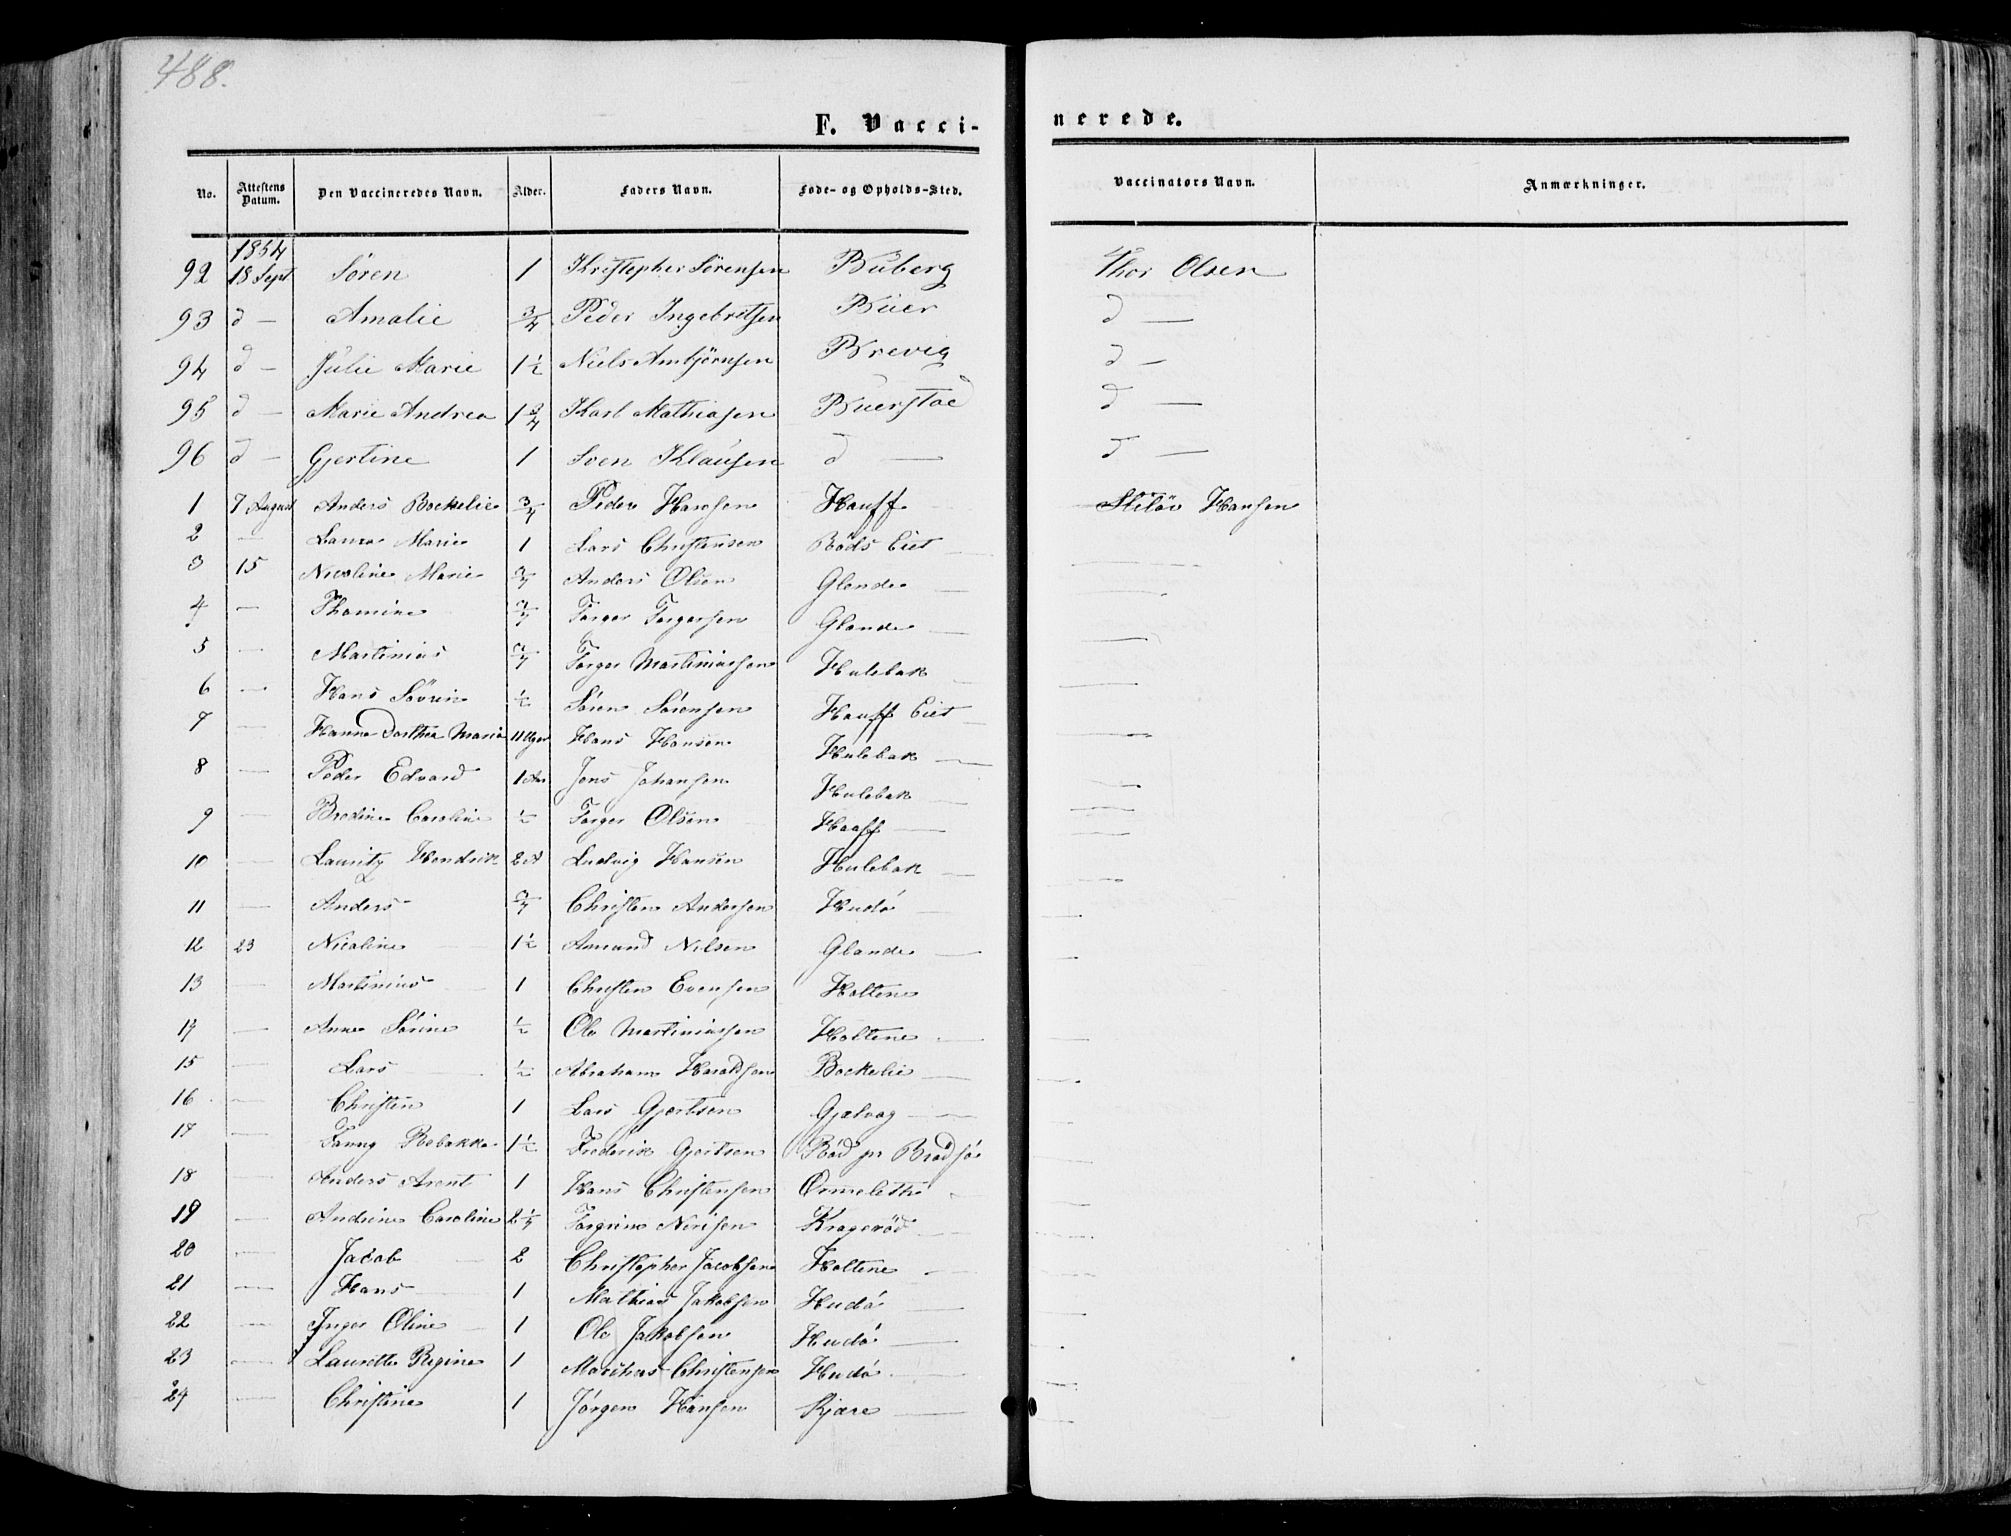 488.
F. Vaccinerede.
No. Attestens Datum. Den Vaccineredes Navn. Alder. Faders Navn. Føde- og Opholds-Sted. Vaccinators Navn. Anmærkninger.
1854
92 18 Sept Søren 1 Kristopher Sørensen Buberg Thor Olsen
93 d — Amalie 3/4 Peder Ingebretsen Buer d —
94 d — Julie Marie 1 1/2 Niels Ambjørnsen Brevig d —
95 d — Marie Andrea 1 3/4 Karl Mathiasen Buerstad d —
96 d — Gjertine 1 Sven Klausen d — d —
1 7 August Anders Bockelie 3/4 Peder Hansen Hauff Hansen
2 — Laura Marie 1 Lars Christensen Røds Eiet —
3 15 Nicoline Marie 3/4 Anders Olsen Glende —
4 — Thomine 3/4 Torger Torgersen Glende —
5 — Martinius 3/4 Torger Martiniussen Hulebak —
6 — Hans Søren 1/2 Søren Sørensen Hauff Eiet —
7 — Hanna Dorthea Maria 11 Uger Hans Hansen Hulebak —
8 — Peder Edvard 1 Aar Jens Johansen Hulebak —
9 — Bredine Caroline 1/2 Torger Olsen Hauff —
10 — Lauritz Hendrik 2 A Ludvig Hansen Hulebak —
11 — Anders 3/4 Christen Andersen Hudø —
12 23 Nicoline 1 1/2 Amund Nilsen Glende —
13 — Martinius 1 Christen Evensen Holtene
14 — Anne Sørine 1/2 Ole Martiniussen Holtene —
15 — Lars 1/2 Abraham Haraldsen Bockelie —
16 — Christen 1 Lars Gjertsen Gjelvag —
17 — Fanny Rebekka 1 1/2 Frederik Gjertsen Rød pr Brødsø
18 — Anders Arent 1 Hans Christensen Ormelethi —
19 — Andrine Caroline 2 1/4 Torgrim Nirisen Kragerød —
20 — Jacob 2 Christopher Jacobsen Holtene —
21 — Hans 1 Mathias Jakobsen Hudø —
22 — Inger Oline 1 Ole Jakobsen Hudø —
23 — Laurette Regine 1 Marthius Christensen Hudø —
24 — Christine 1 Jørgen Hansen Kjære —